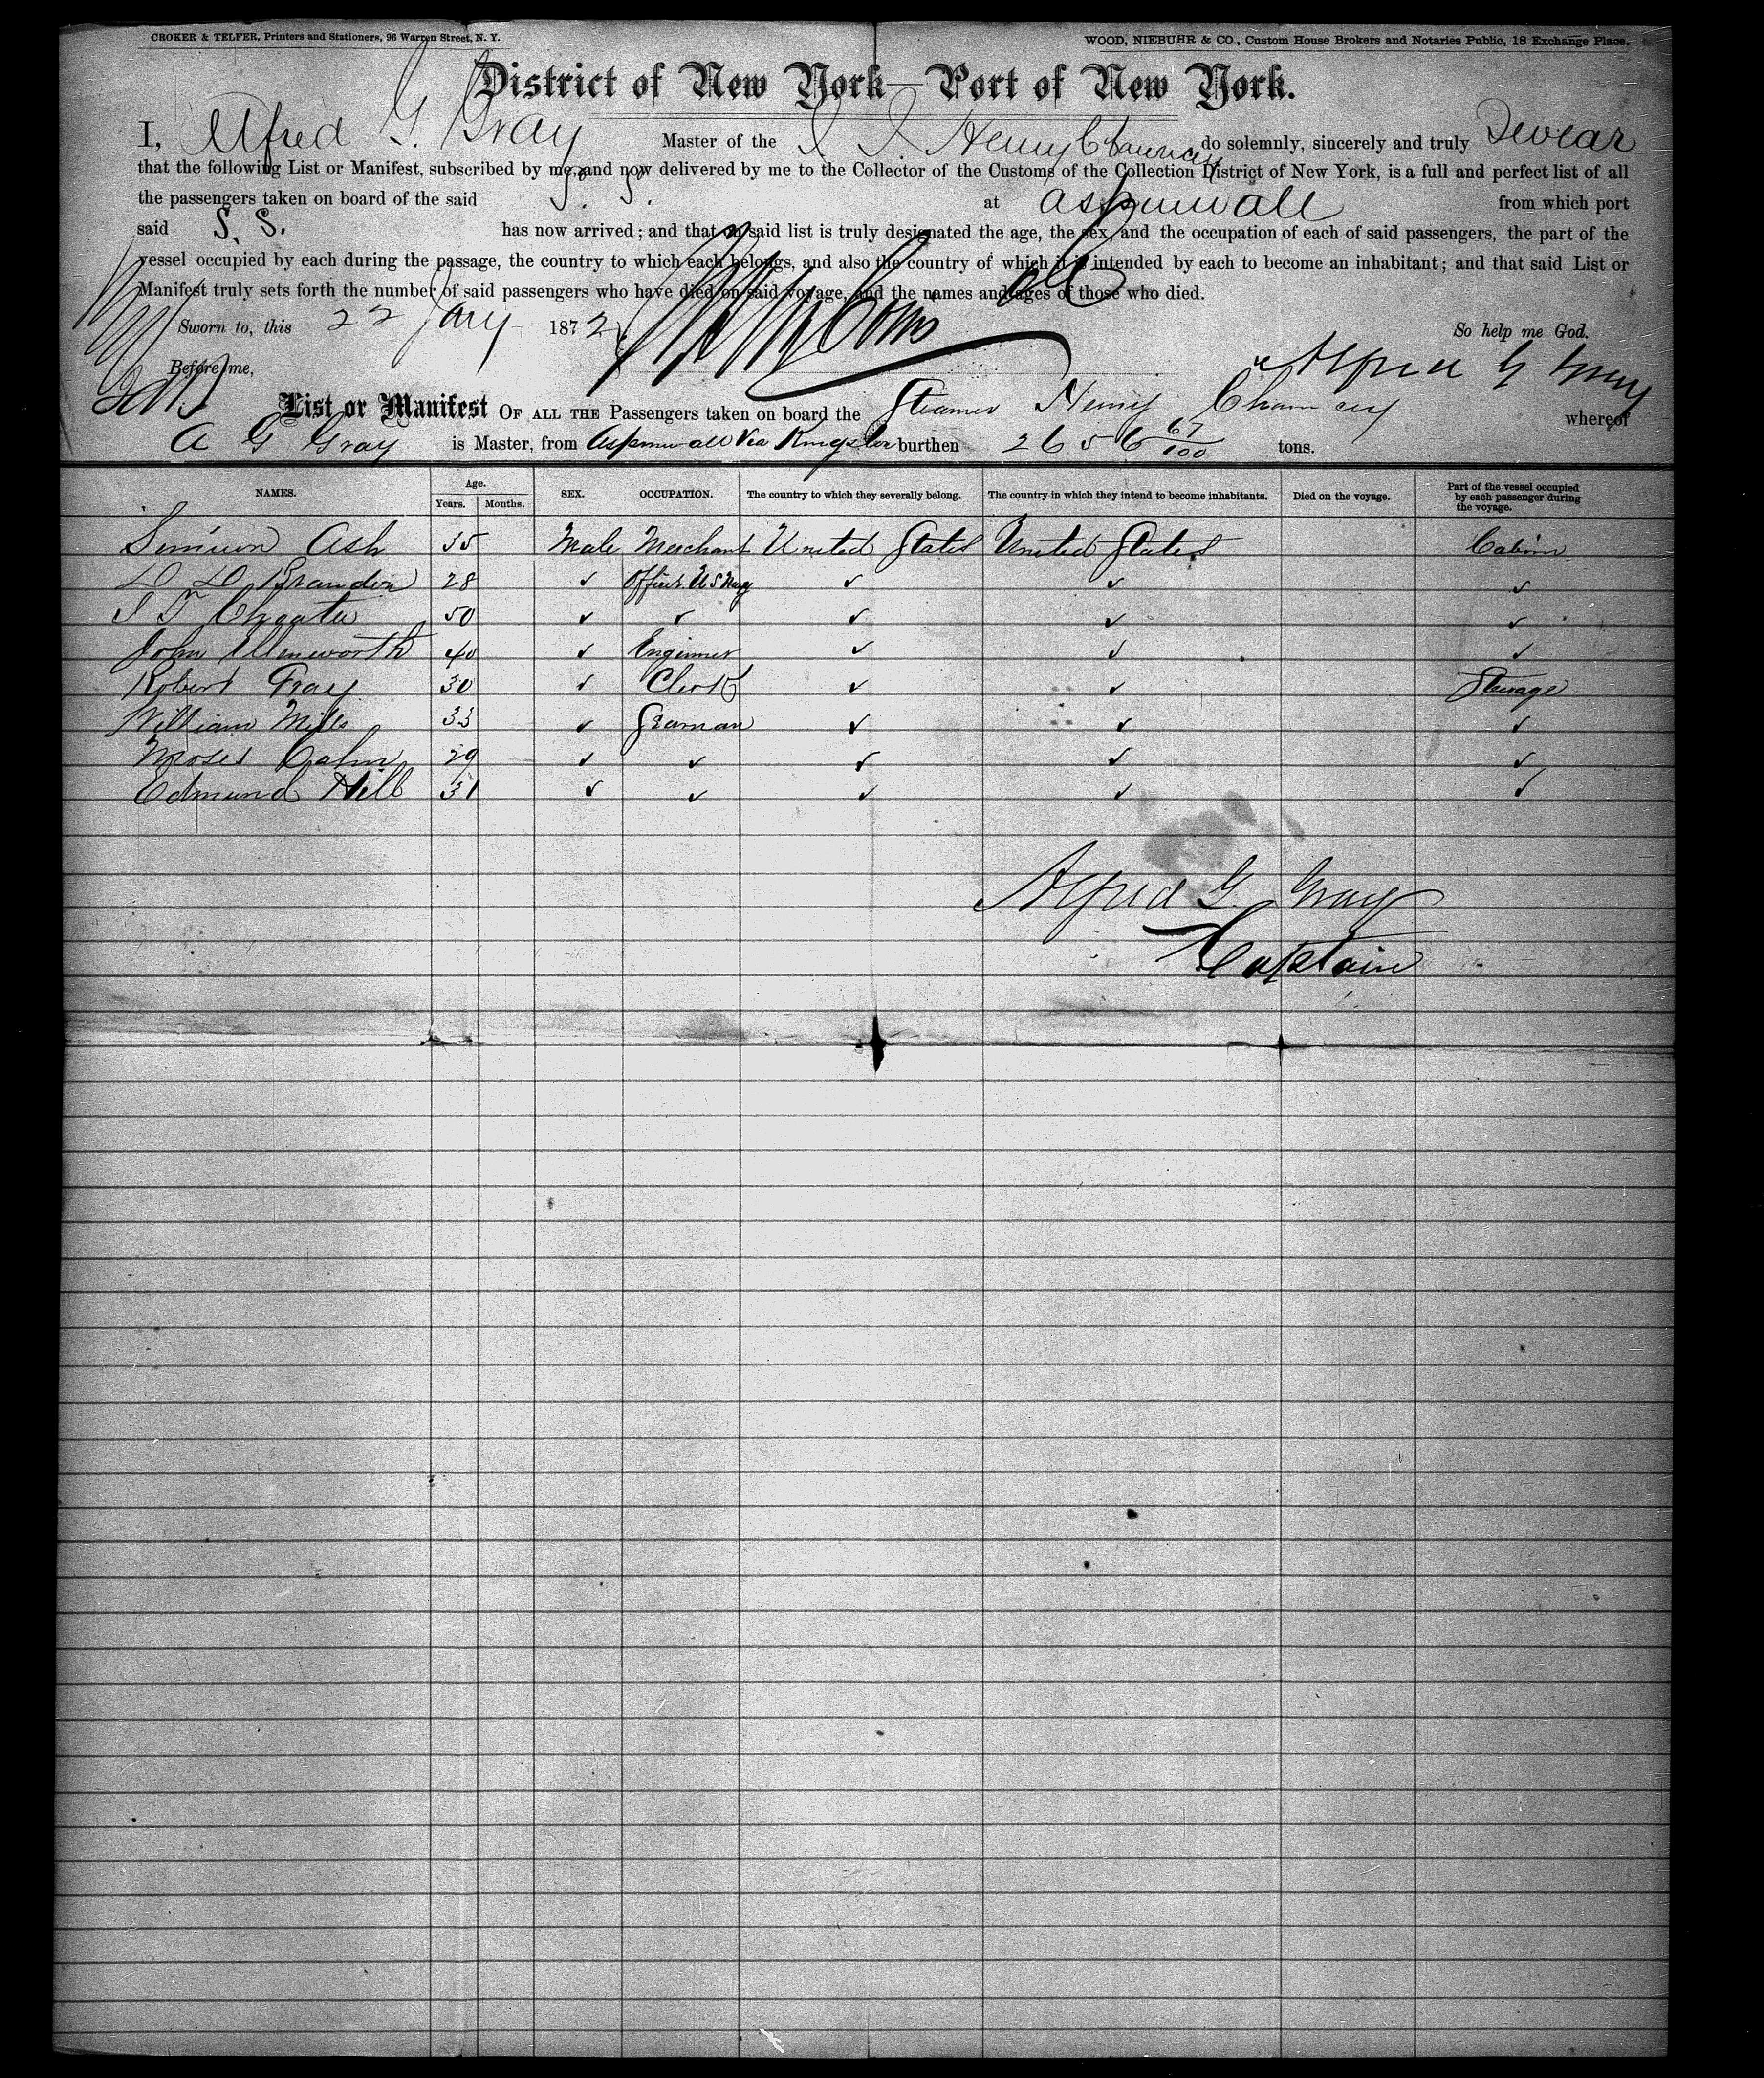 CROKER & TELFER, Printers and Stationers, 96 Warren Street, N. Y. WOOD, NIEBUHR & CO., Custom House Brokers and Notaries Public, 18 Exchange Place.
District of New York—Port of New York.
I, Alfred G. Gray Master of the S S Henry Chauncey do solemnly, sincerely and truly Swear
that the following List or Manifest, subscribed by me, and now delivered by me to the Collector of the Customs of the Collection District of New York, is a full and perfect list of all
the passengers taken on board of the said S. S. at Aspinwall from which port
said S. S. has now arrived; and that on said list is truly designated the age, the sex, and the occupation of each of said passengers, the part of the
vessel occupied by each during the passage, the country to which each belongs, and also the country of which it is intended by each to become an inhabitant; and that said List or
Manifest truly sets forth the number of said passengers who have died on said voyage, and the names and ages of those who died.
Sworn to, this 22 Jany 1872 So help me God.
Before me, Alfred G Gray
List or Manifest OF ALL THE Passengers taken on board the Steamer Henry Chauncey whereof
A G Gray is Master, from Aspinwall Via Kingston burthen 2656 67/100 tons.
NAMES. Age. Years. Months. SEX. OCCUPATION. The country to which they severally belong. The country in which they intend to become inhabitants. Died on the voyage. Part of the vessel occupied by each passenger during the voyage.
Simeon Ash 35 Male Merchant United States United States Cabin
D D Brandon 28 ✓ Officer U S Navy ✓ ✓ ✓
S T Choate 50 ✓ ✓ ✓ ✓ ✓
John Ellenworth 40 ✓ Engineer ✓ ✓ ✓
Robert Gray 30 ✓ Clerk ✓ ✓ Steerage
William Mills 33 ✓ Seaman ✓ ✓ ✓
Moses Cahn 29 ✓ ✓ ✓ ✓ ✓
Edmund Hill 31 ✓ ✓ ✓ ✓ ✓
Alfred G. Gray
Captain